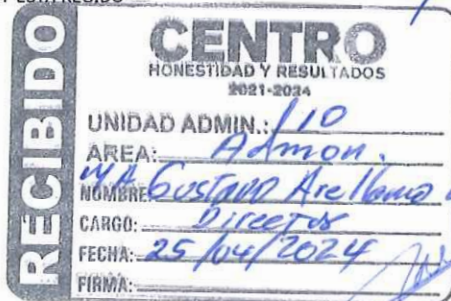 RECIBIDO
CENTRO
HONESTIDAD Y RESULTADOS
2021-2024
UNIDAD ADMIN.: 110
AREA: Admon.
NOMBRE: M.A. Gustavo Arellano
CARGO: Director
FECHA: 25/04/2024
FIRMA: